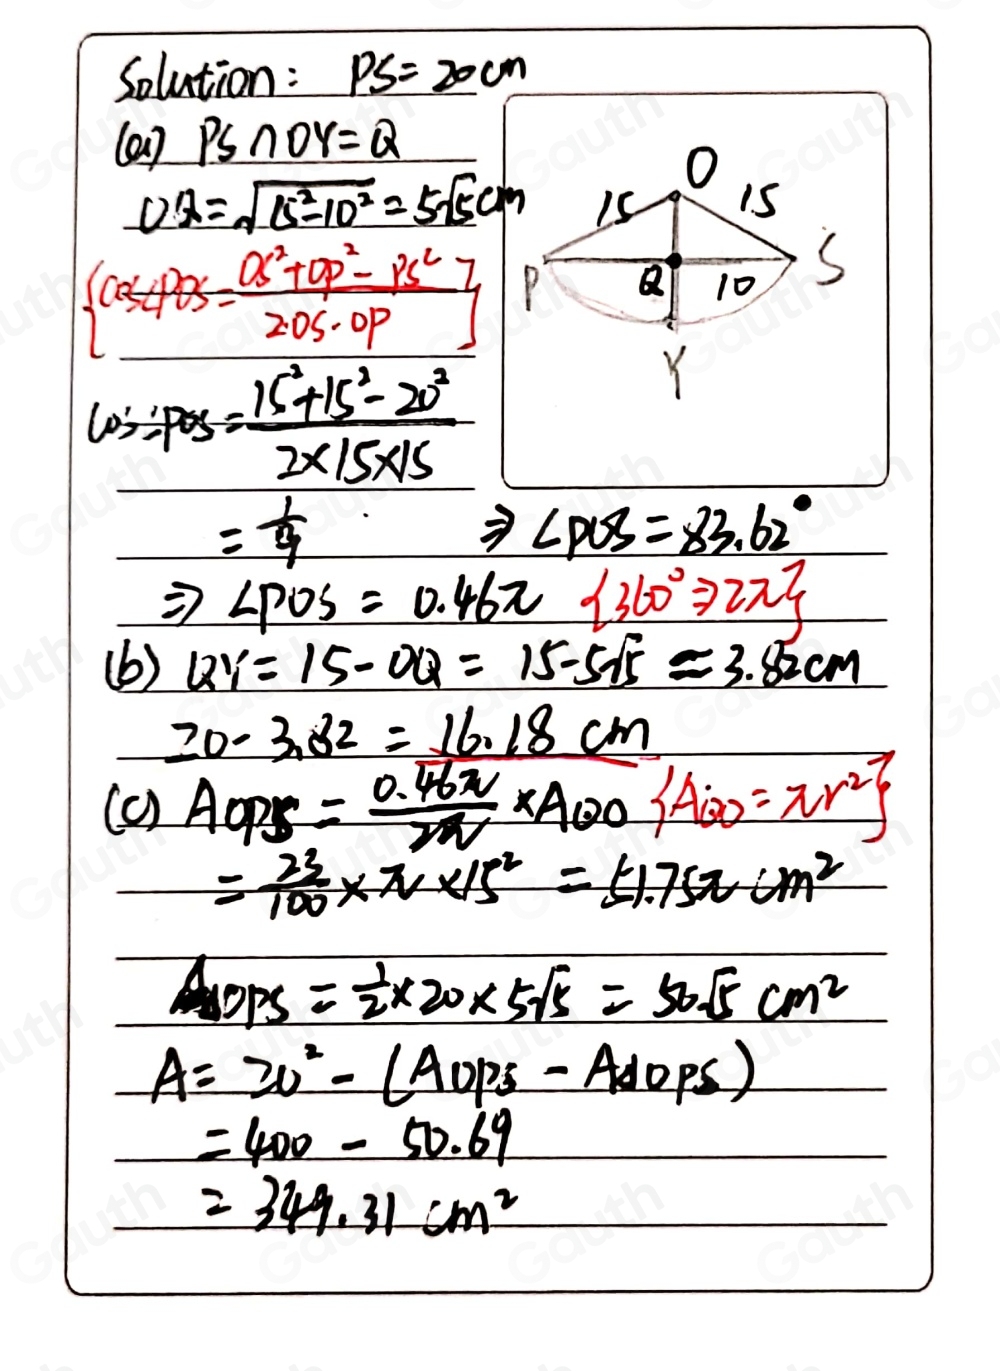 Solution: PS=20cm
(a) PS∩OY=Q
OQ=√(15²-10²)=5√5cm
{cos∠POS=(OS²+OP²-PS²)/(2·OS·OP)}
cos∠POS=(15²+15²-20²)/(2×15×15)
=1/9 ⇒∠POS=83.62°
⇒∠POS=0.46π {360°⇒2π}
(b) QY=15-OQ=15-5√5≈3.82cm
20-3.82=16.18cm
(c) AOPS=0.46π/2π×A⊙O {A⊙O=πr²}
=23/100×π×15²=51.75πcm²
A△OPS=1/2×20×5√5=50√5cm²
A=20²-(AOPS-A△OPS)
=400-50.69
=349.31cm²
O
15
15
P
Q
10
S
Y
Gauth